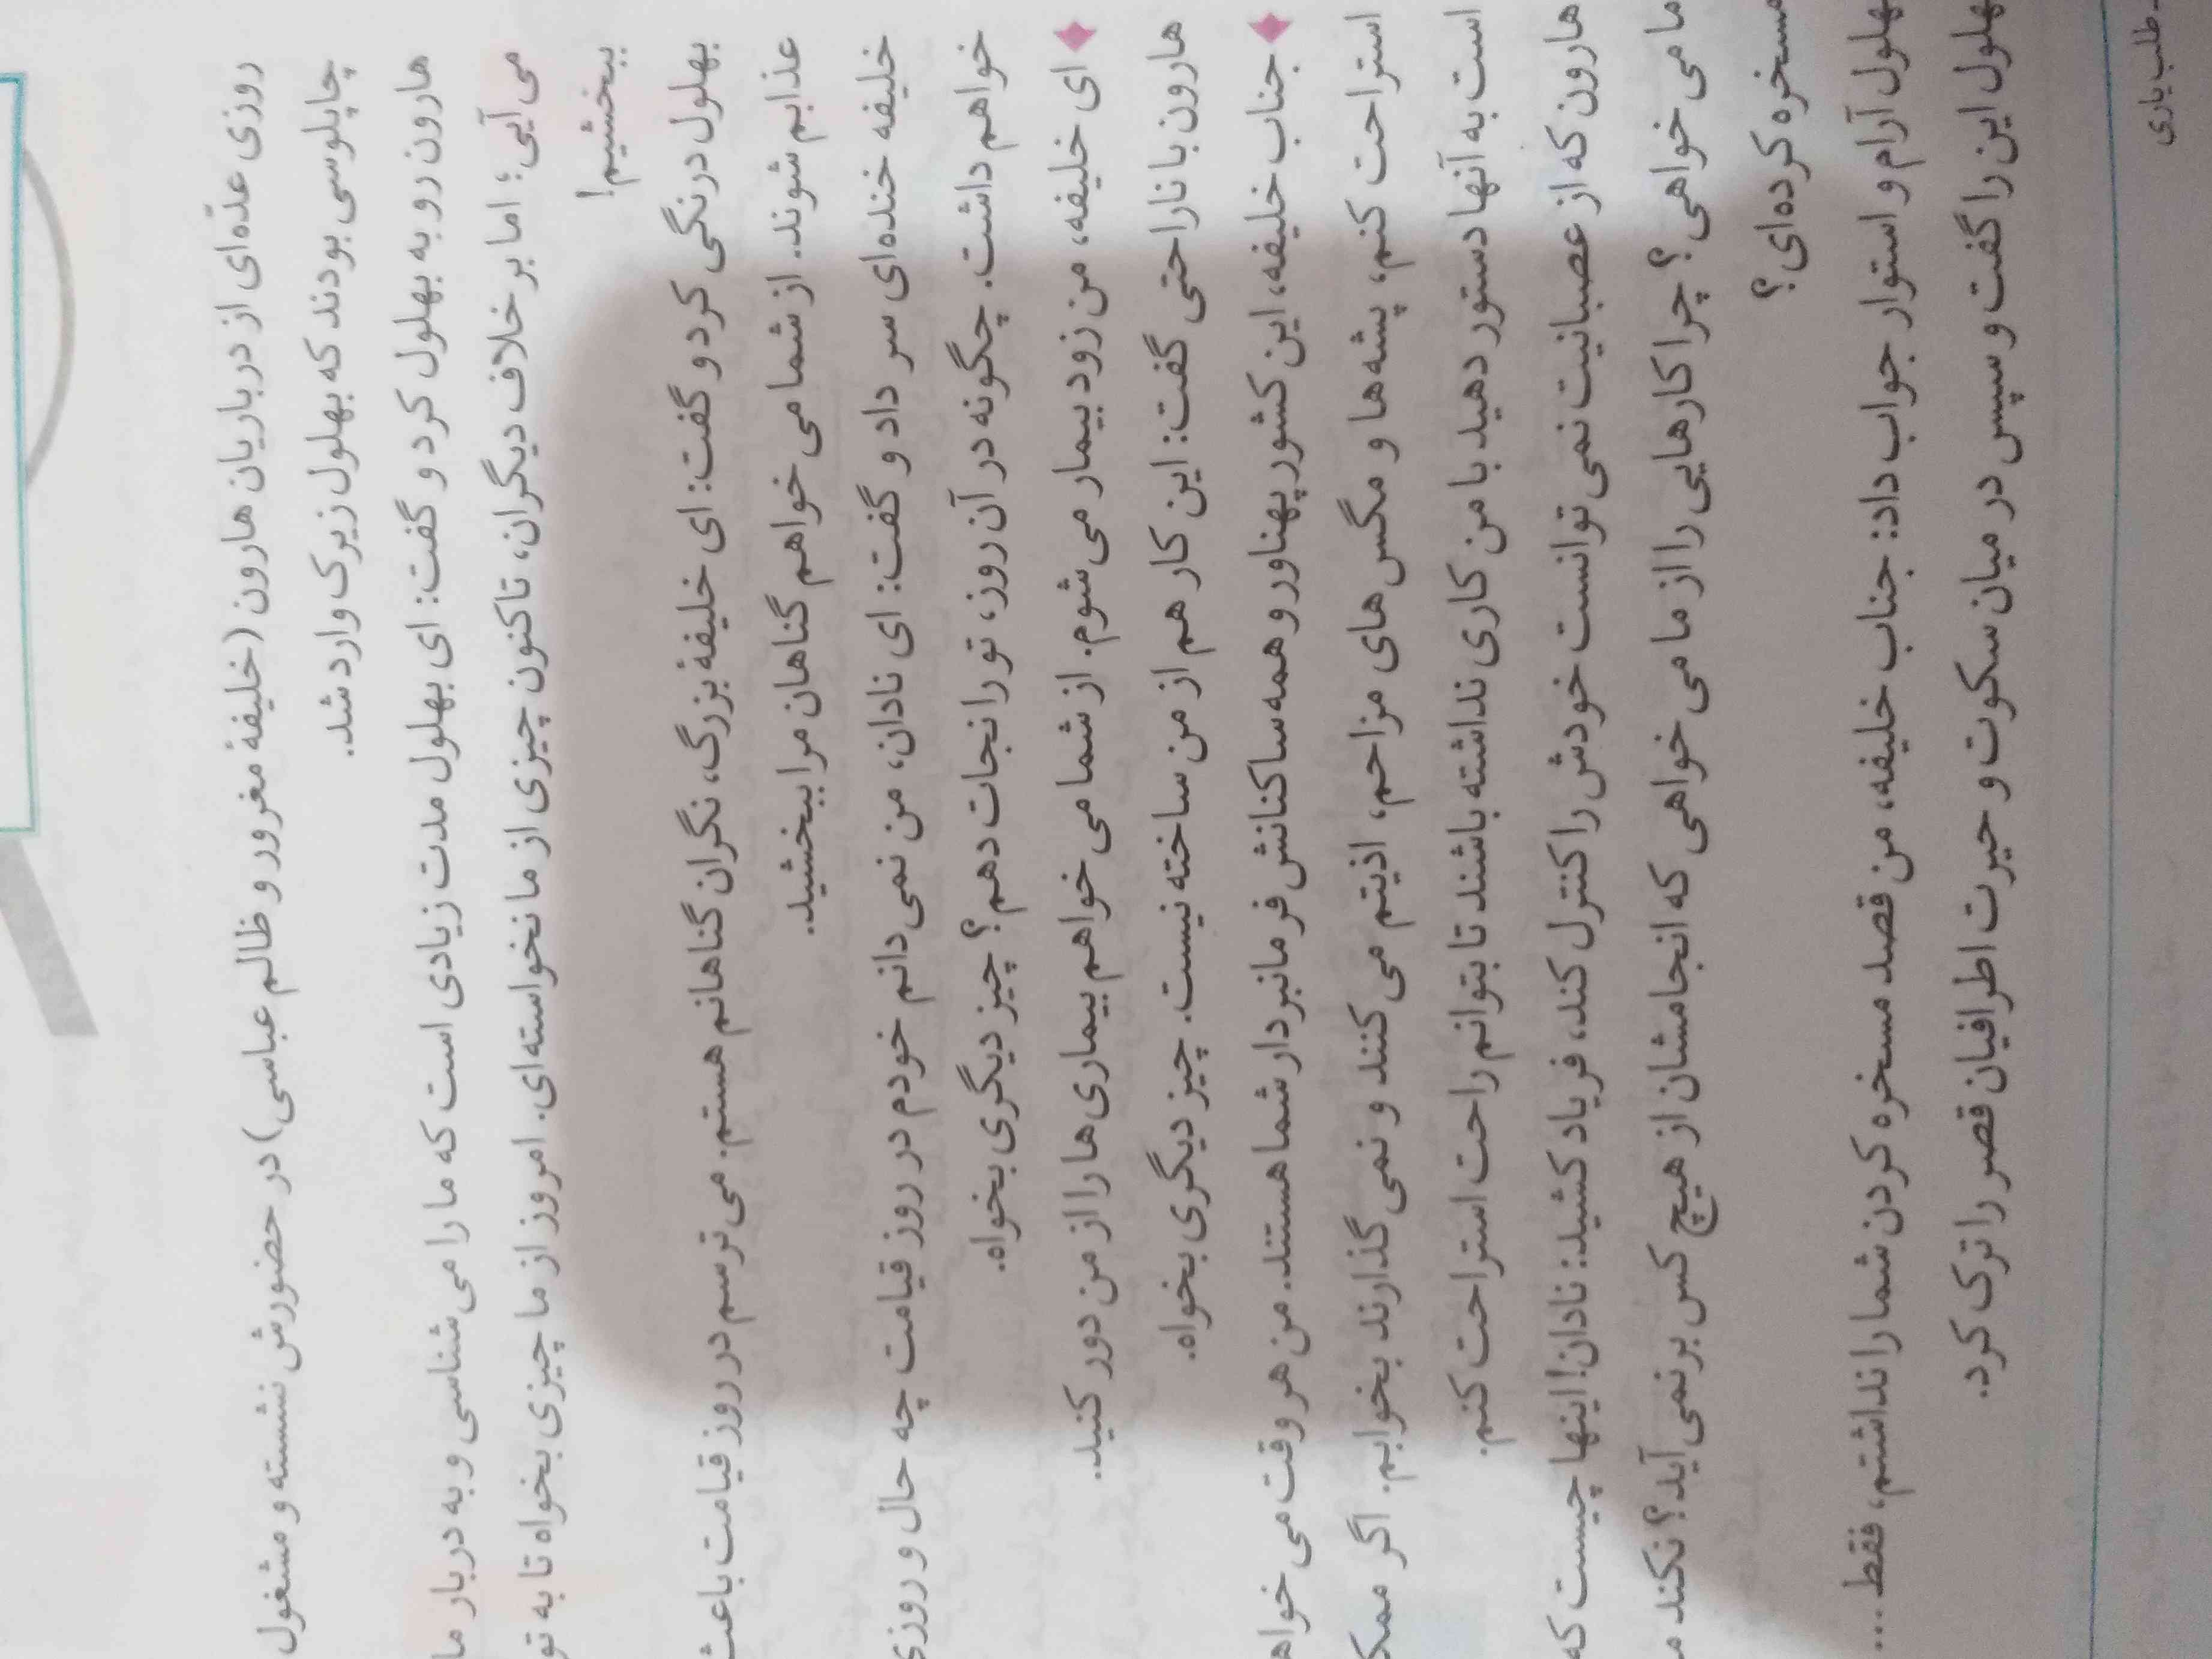 روزی عدّه‌ای از درباریان هارون (خلیفهٔ مغرور و ظالم عباسی) در حضورش نشسته و مشغول
چاپلوسی بودند که بهلول زیرک وارد شد.
هارون رو به بهلول کرد و گفت: ای بهلول مدت زیادی است که ما را می‌شناسی و به دربار ما
می‌آیی؛ اما بر خلاف دیگران، تاکنون چیزی از ما نخواسته‌ای. امروز از ما چیزی بخواه تا به تو
ببخشیم!
بهلول درنگی کرد و گفت: ای خلیفهٔ بزرگ، نگران گناهانم هستم. می‌ترسم در روز قیامت باعث
عذابم شوند. از شما می‌خواهم گناهان مرا ببخشید.
خلیفه خنده‌ای سر داد و گفت: ای نادان، من نمی‌دانم خودم در روز قیامت چه حال و روزی
خواهم داشت. چگونه در آن روز، تو را نجات دهم؟ چیز دیگری بخواه.
ای خلیفه، من زود بیمار می‌شوم. از شما می‌خواهم بیماری‌ها را از من دور کنید.
هارون با ناراحتی گفت: این کار هم از من ساخته نیست. چیز دیگری بخواه.
جناب خلیفه، این کشور پهناور و همه ساکنانش فرمانبردار شما هستند. من هر وقت می‌خواه
استراحت کنم، پشه‌ها و مگس‌های مزاحم، اذیتم می‌کنند و نمی‌گذارند بخوابم. اگر ممک
است به آنها دستور دهید با من کاری نداشته باشند تا بتوانم راحت استراحت کنم.
هارون که از عصبانیت نمی‌توانست خودش را کنترل کند، فریاد کشید: نادان! اینها چیست که
ما می‌خواهی؟ چرا کارهایی را از ما می‌خواهی که انجامشان از هیچ کس بر نمی‌آید؟ نکند م
مسخره کرده‌ای؟
بهلول آرام و استوار جواب داد: جناب خلیفه، من قصد مسخره کردن شما را نداشتم، فقط ...
بهلول این را گفت و سپس در میان سکوت و حیرت اطرافیان قصر را ترک کرد.
طلب یاری